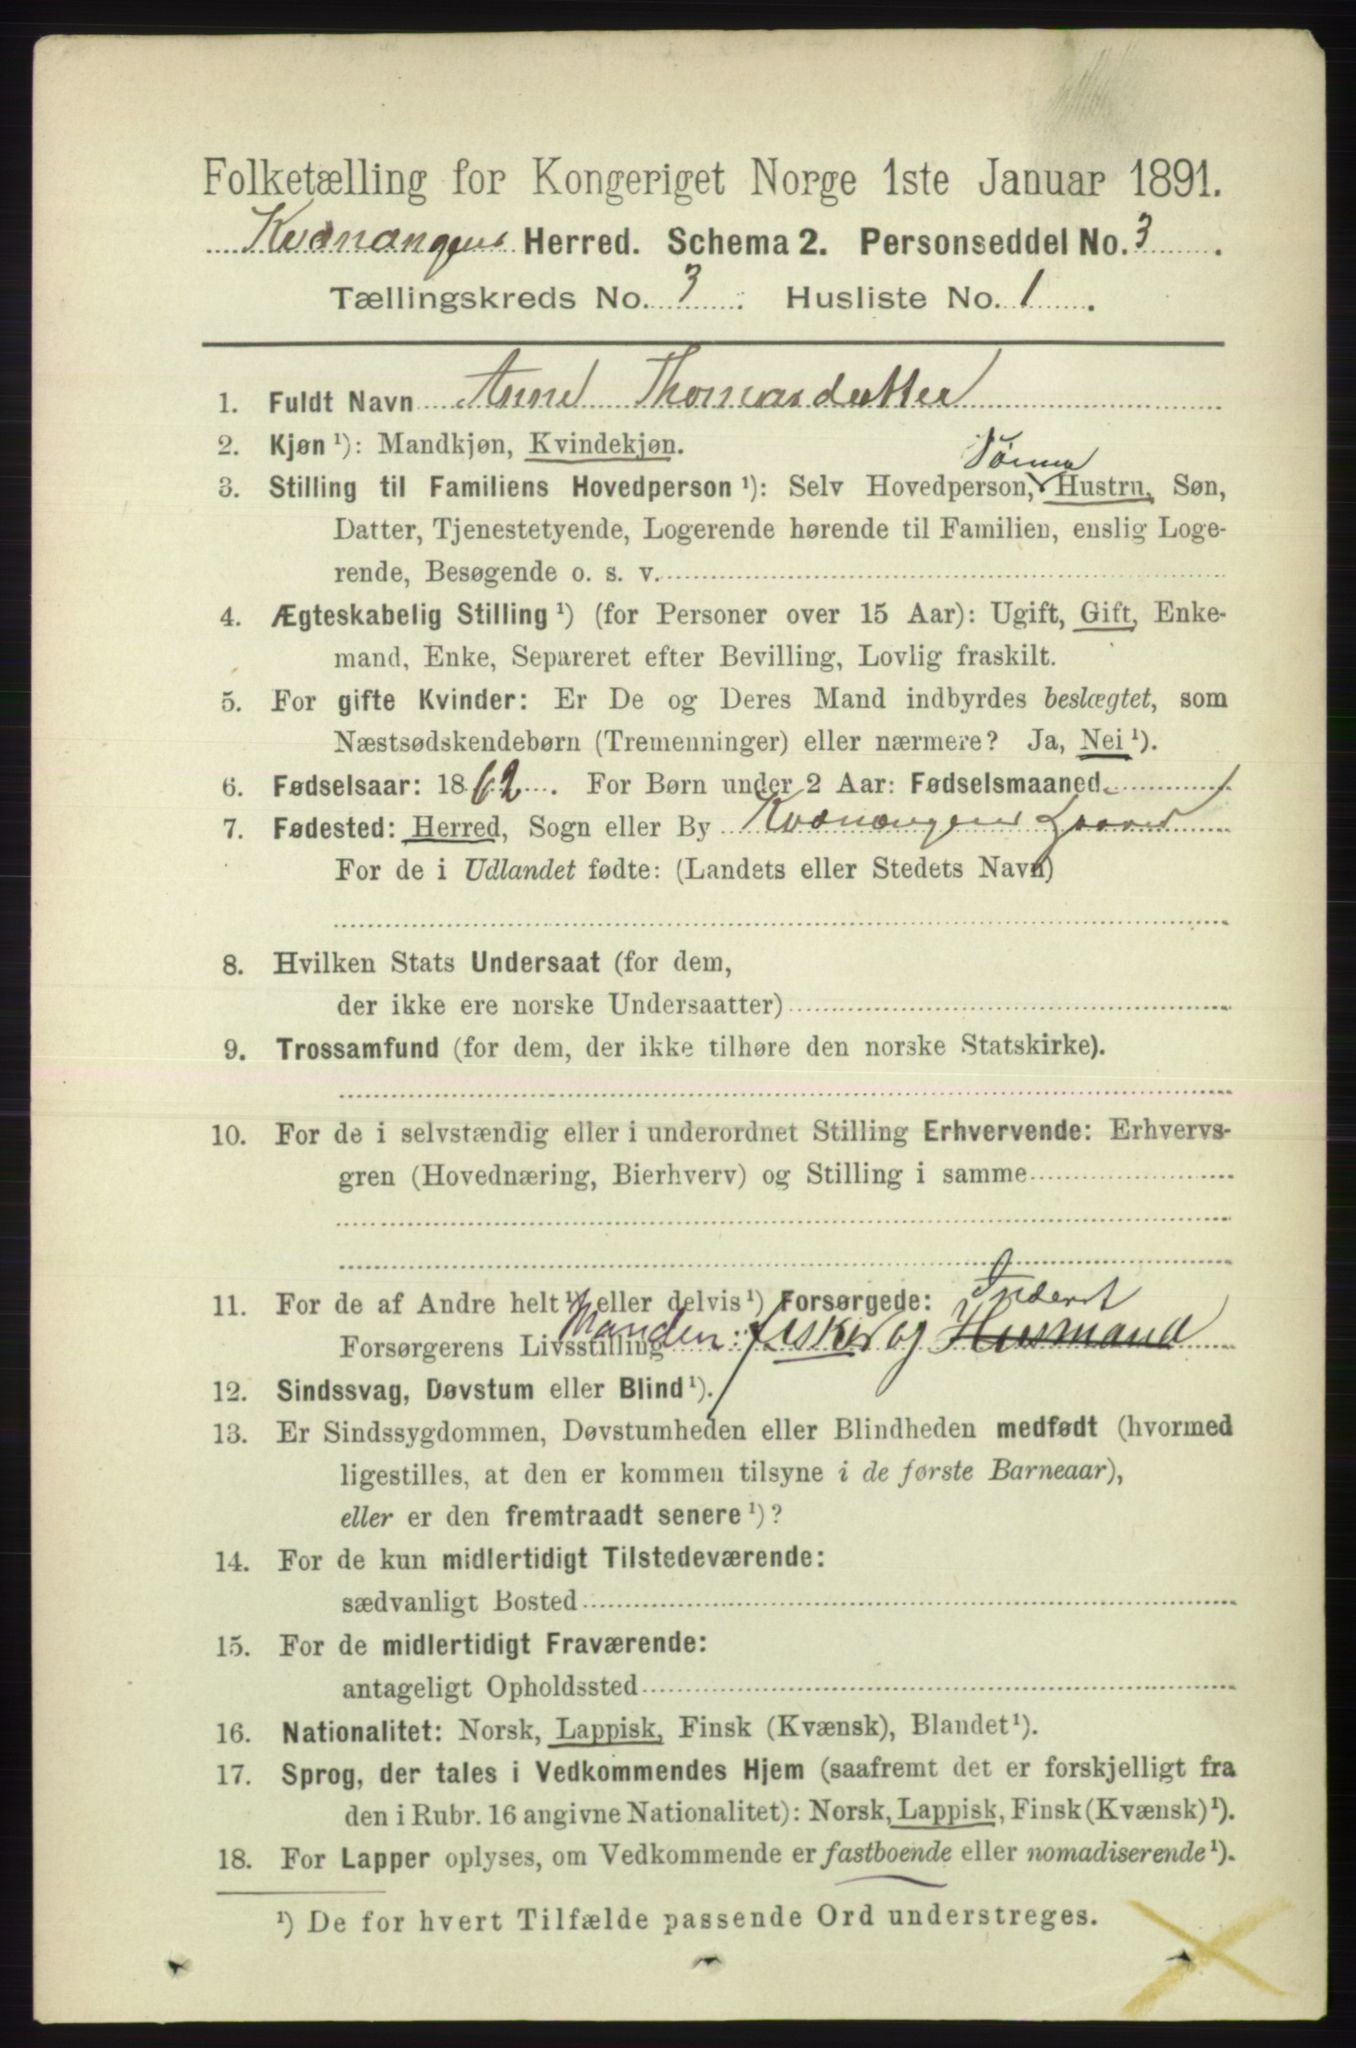 Folketælling for Kongeriget Norge 1ste Januar 1891.
Kvænangens Herred. Schema 2. Personseddel No. 3.
Tællingskreds No. 3. Husliste No. 1.
1. Fuldt Navn Anne Thomasdatter
2. Kjøn ¹): Mandkjøn, Kvindekjøn.
Sønns
3. Stilling til Familiens Hovedperson ¹): Selv Hovedperson, Hustru, Søn,
Datter, Tjenestetyende, Logerende hørende til Familien, enslig Loge-
rende, Besøgende o. s. v.
4. Ægteskabelig Stilling ¹) (for Personer over 15 Aar): Ugift, Gift, Enke-
mand, Enke, Separeret efter Bevilling, Lovlig fraskilt.
5. For gifte Kvinder: Er De og Deres Mand indbyrdes beslægtet, som
Næstsødskendebørn (Tremenninger) eller nærmere? Ja, Nei ¹).
6. Fødselsaar: 1862. For Børn under 2 Aar: Fødselsmaaned
7. Fødested: Herred, Sogn eller By Kvænangens
For de i Udlandet fødte: (Landets eller Stedets Navn)
8. Hvilken Stats Undersaat (for dem,
der ikke ere norske Undersaatter)
9. Trossamfund (for dem, der ikke tilhøre den norske Statskirke).
10. For de i selvstændig eller i underordnet Stilling Erhvervende: Erhvervs-
gren (Hovednæring, Bierhverv) og Stilling i samme
11. For de af Andre helt ¹) eller delvis ¹) Forsørgede: Inderst
Forsørgerens Livsstilling Manden: fisker og Husmand
12. Sindssvag, Døvstum eller Blind ¹).
13. Er Sindssygdommen, Døvstumheden eller Blindheden medfødt (hvormed
ligestilles, at den er kommen tilsyne i de første Barneaar),
eller er den fremtraadt senere ¹)?
14. For de kun midlertidigt Tilstedeværende:
sædvanligt Bosted
15. For de midlertidigt Fraværende:
antageligt Opholdssted
16. Nationalitet: Norsk, Lappisk, Finsk (Kvænsk), Blandet ¹).
17. Sprog, der tales i Vedkommendes Hjem (saafremt det er forskjelligt fra
den i Rubr. 16 angivne Nationalitet): Norsk, Lappisk, Finsk (Kvænsk) ¹).
18. For Lapper oplyses, om Vedkommende er fastboende eller nomadiserende ¹).
¹) De for hvert Tilfælde passende Ord understreges.